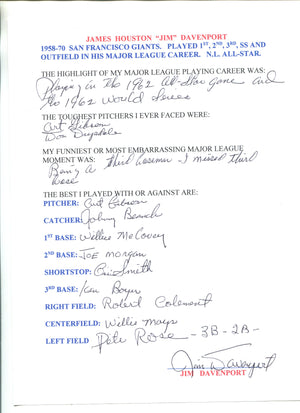 JAMES HOUSTON "JIM" DAVENPORT
1958-70 SAN FRANCISCO GIANTS. PLAYED 1ST, 2ND, 3RD, SS AND
OUTFIELD IN HIS MAJOR LEAGUE CAREER. N.L. ALL-STAR.
THE HIGHLIGHT OF MY MAJOR LEAGUE PLAYING CAREER WAS:
Playing in the 1962 All-Star game and
the 1962 World Series
THE TOUGHEST PITCHERS I EVER FACED WERE:
Curt Gibson
Don Drysdale
MY FUNNIEST OR MOST EMBARRASSING MAJOR LEAGUE
MOMENT WAS: third baseman - I missed third
Being a
base
THE BEST I PLAYED WITH OR AGAINST ARE:
PITCHER: Curt Gibson
CATCHER: Johnny Bench
1ST BASE: Willie McCovey
2ND BASE: JOE Morgan
SHORTSTOP: Smith
3RD BASE: Ken Boyer
RIGHT FIELD: Robert
CENTERFIELD: Willie Mays
LEFT FIELD Pete Rose - 3B - 2B -
Jim Davenport
JIM DAVENPORT